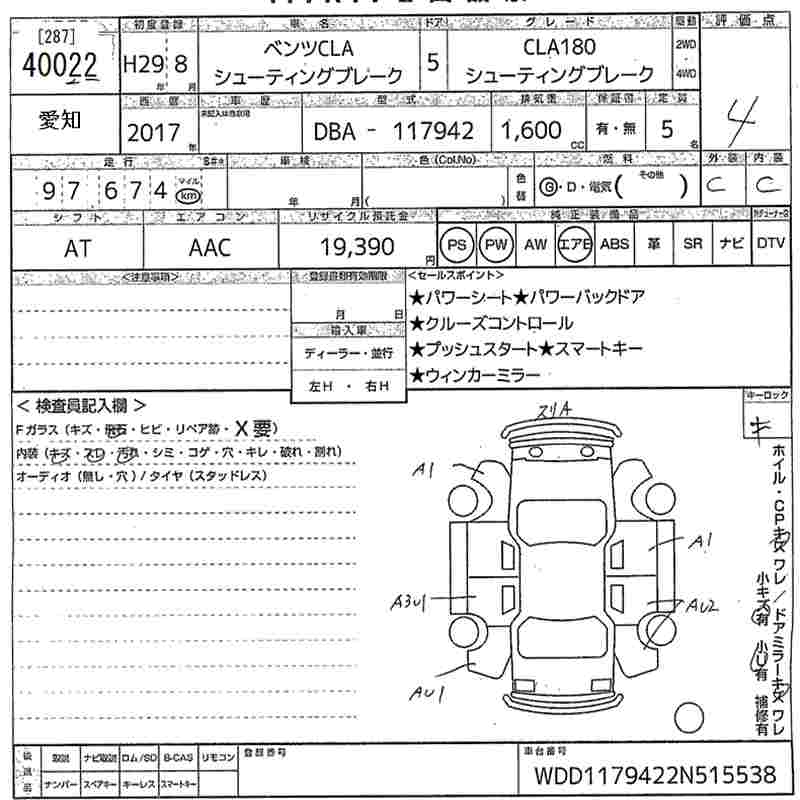 [287]
40022
初度登録
車名
ドア
グレード
駆動
評価点
H29 8
年 月
ベンツCLA
シューティングブレーク
5
CLA180
シューティングブレーク
2WD
4WD
4
愛知
西暦
車歴
型式
排気量
保証書
定員
2017
年
未記入は自家用
DBA - 117942
1,600
CC
有・無
5
名
走行
車検
色(Col.No)
燃料
外装
内装
97 674
マイル
km
年 月
( )
色替
G・D・電気(その他 )
C
C
シフト
エアコン
リサイクル預託金
純正装備品
AT
AAC
19,390
円
PS
PW
AW
エアB
ABS
革
SR
ナビ
DTV
<注意事項>
登録書類有効期限
月 日
輸入車
ディーラー・並行
左H ・ 右H
<セールスポイント>
★パワーシート★パワーバックドア
★クルーズコントロール
★プッシュスタート★スマートキー
★ウィンカーミラー
< 検査員記入欄 >
Fガラス(キズ・飛石・ヒビ・リペア跡・X要)
内装(キズ・スレ・汚れ・シミ・コゲ・穴・キレ・破れ・割れ)
オーディオ(無し・穴)/タイヤ(スタッドレス)
キーロック
キ
スリA
A1
A1
A3U1
AU2
AU1
ホイル・CPキズ ワレ/ドアミラーキズ ワレ
小キズ有 小U有 補修有
後送品
取説
ナビ取説
ロム/SD
B-CAS
リモコン
ナンバー
スペアキー
キーレス
スマートキー
登録番号
車台番号
WDD1179422N515538